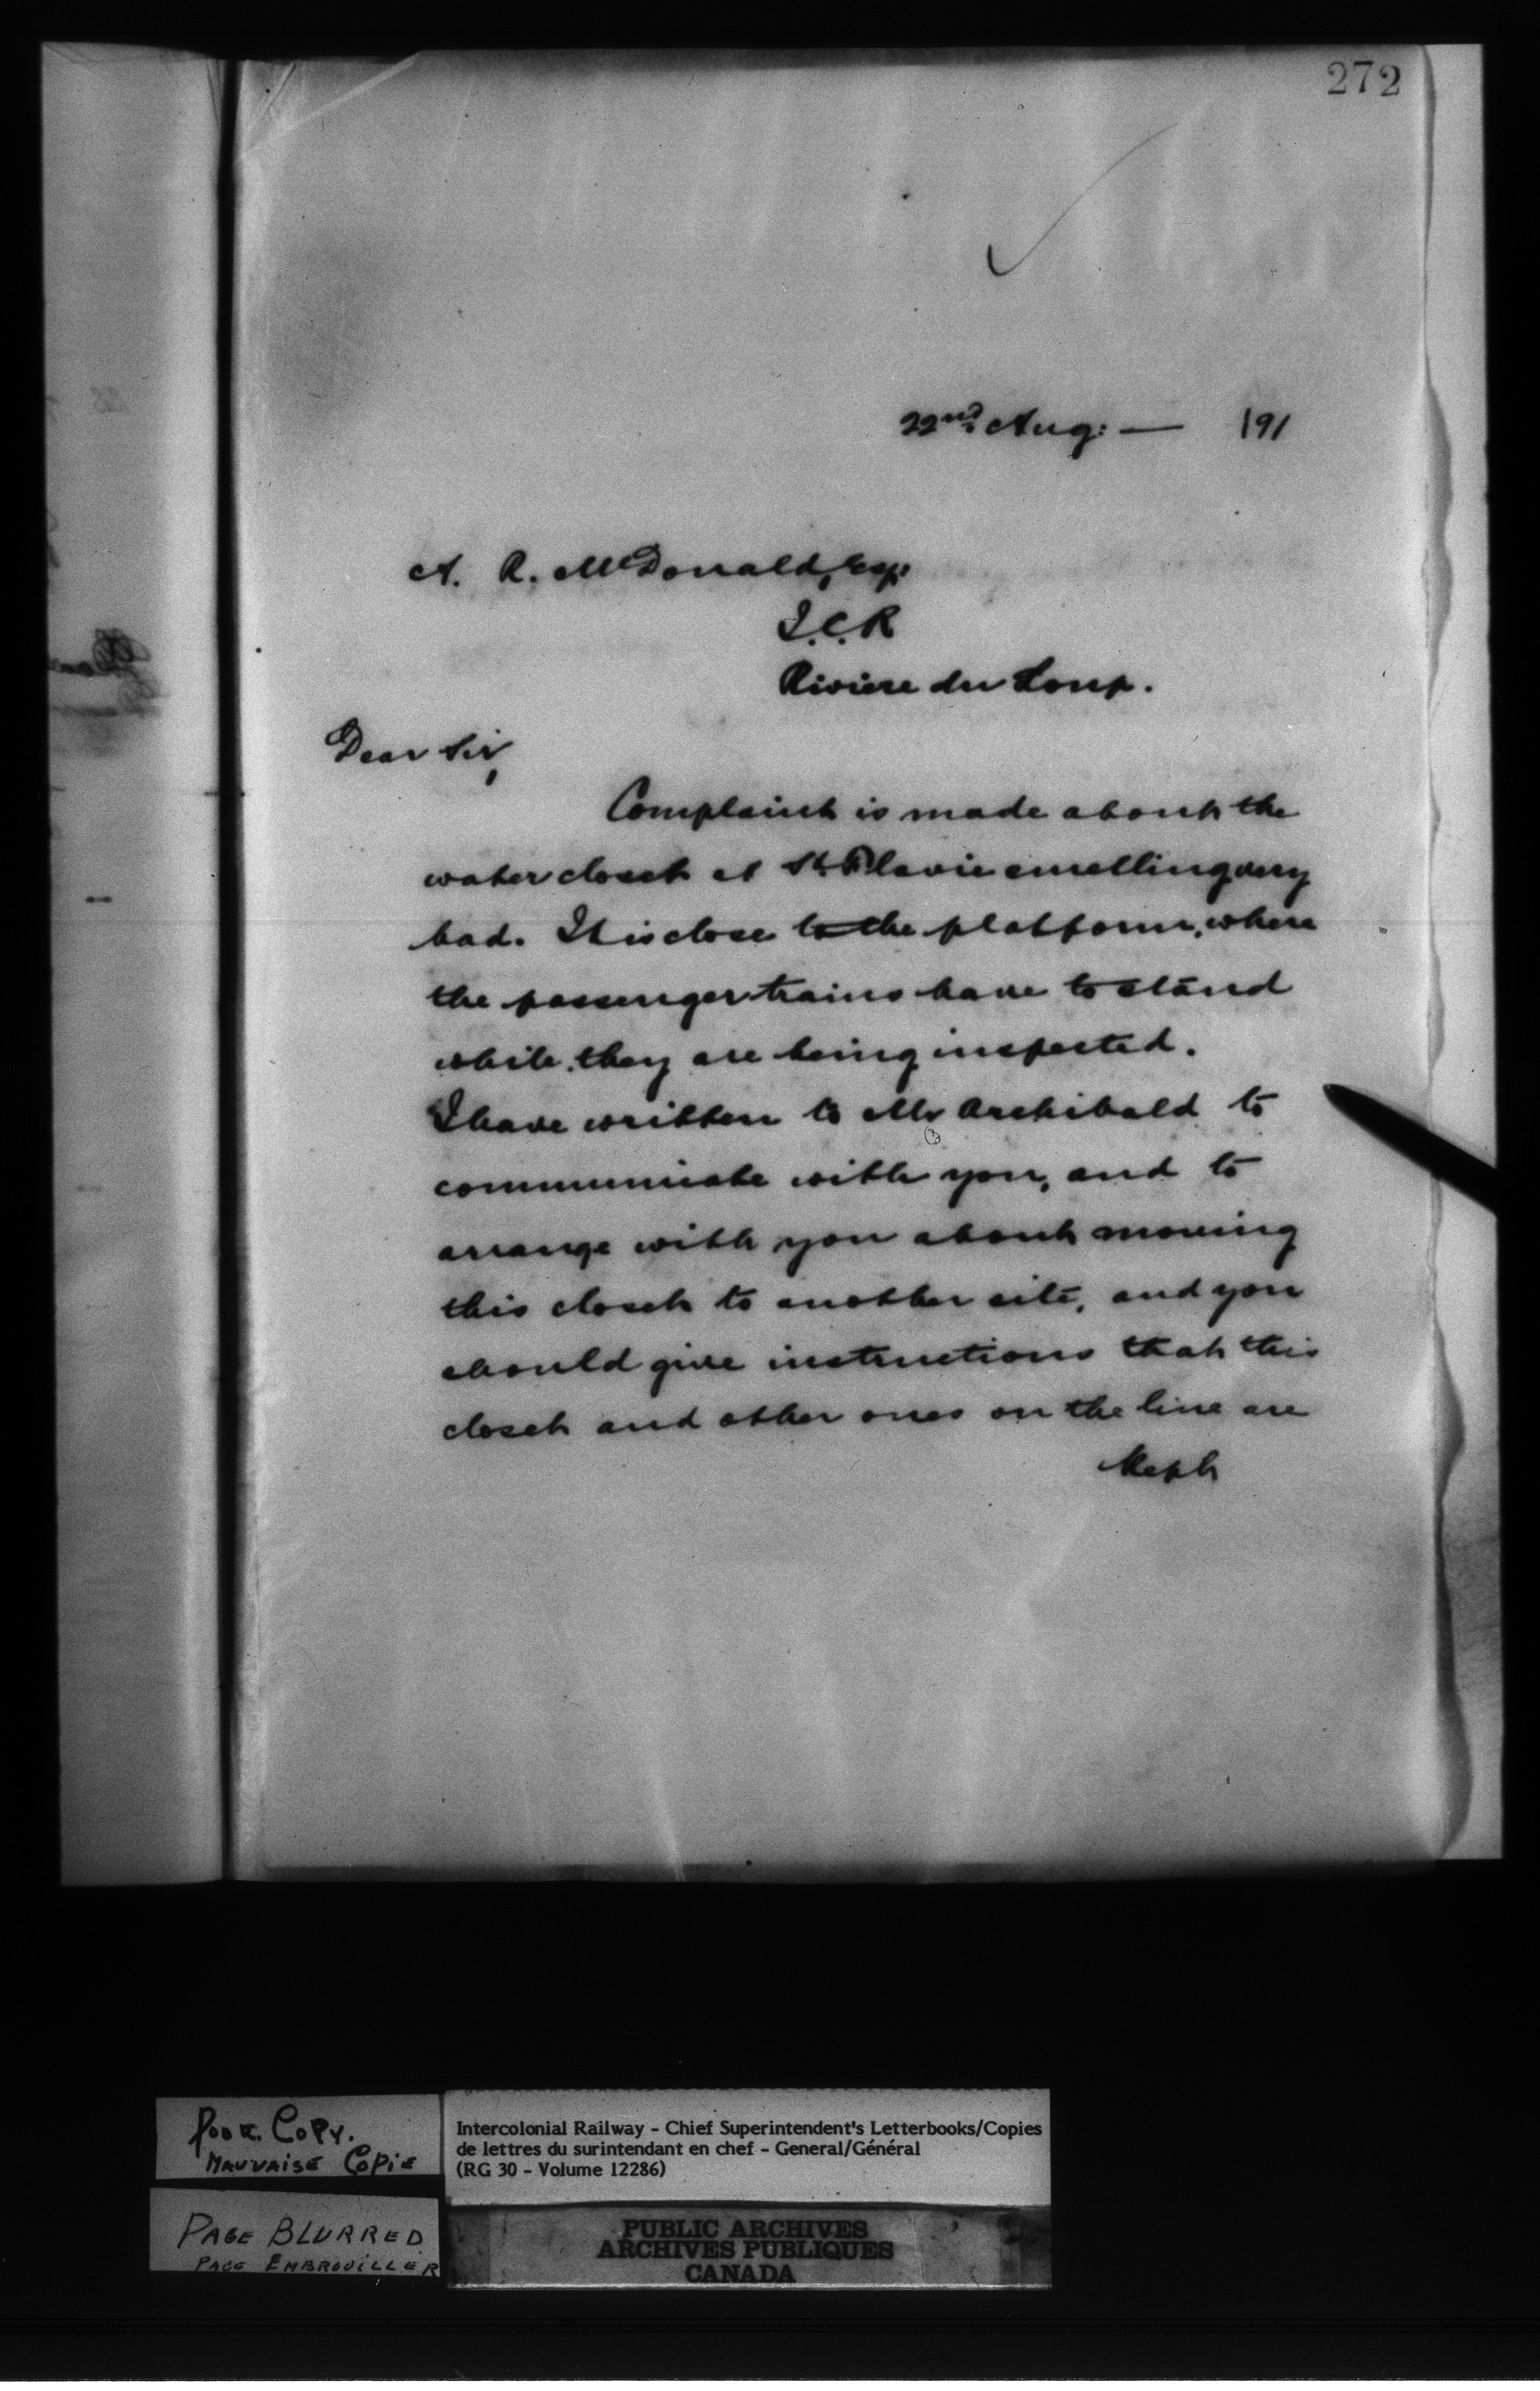 272
22nd Aug: — 191
A. R. McDonald, Esq.
I.C.R
Riviere du Loup.
Dear Sir,
Complaint is made about the
water closet at St. Flavie smelling very
bad. It is close to the platform, where
the passenger trains have to stand
while they are being inspected.
I have written to Mr Archibald to
communicate with you, and to
arrange with you about moving
this closet to another site, and you
should give instructions that this
closet and other ones on the line are
Kept
Poor Copy.
Mauvaise Copie
PAGE BLURRED
PAGE EMBROUILLER
Intercolonial Railway - Chief Superintendent's Letterbooks/Copies
de lettres du surintendant en chef - General/Général
(RG 30 - Volume 12286)
PUBLIC ARCHIVES
ARCHIVES PUBLIQUES
CANADA